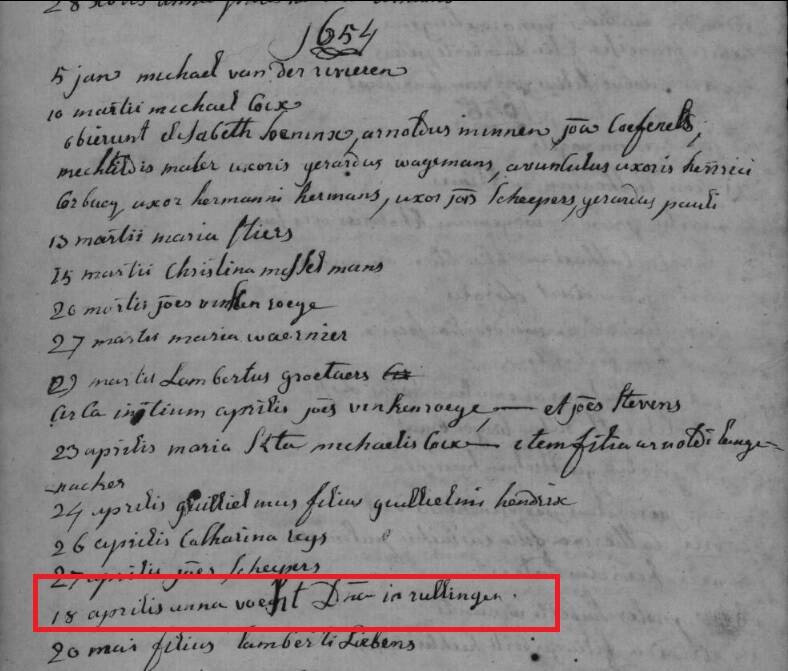 1654
5 jan michael van der rivieren
10 martii michael Coix
obierunt elisabeth soeninx, arnoldus minnen, joēs Coefenels,
mechtildis mater uxoris gerardus wagemans, avunculus uxoris henrici
Corbucy, uxor hermanni hermans, uxor joēs Scheepers, gerardus pauli
13 martii maria stiers
15 martii Christina messelmans
20 martis joēs vinkenroege
27 martii maria waernier
29 martii Lambertus groetaers
Circa initium aprilis joēs vinkenroege, — et joēs Stevens
23 aprilis maria michaelis Coix — item filia arnoldi lange-
-nacker
24 aprilis guillielmus filius guillielmi hendrix
26 aprilis Catharina reys
27 aprilis joēs Scheepers
18 aprilis anna voecht Dn̄a in rullingen.
20 maii filius lamberti Liebens